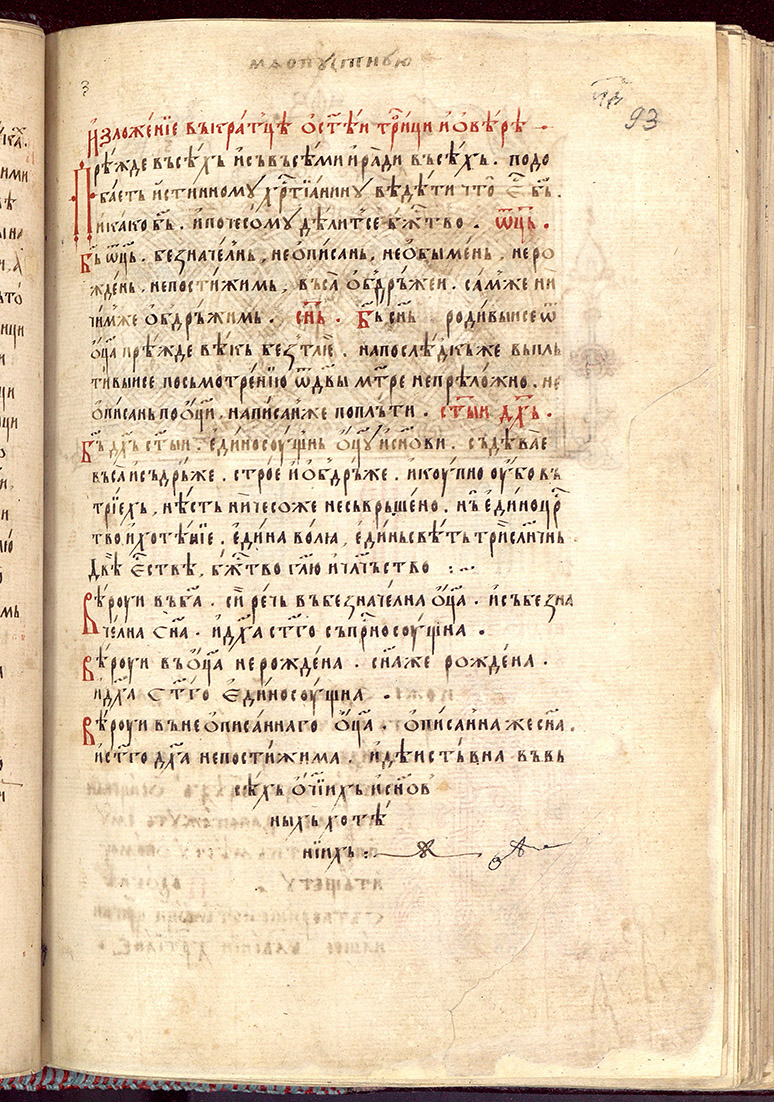 маопꙋстнью
з
чг 93
И҆зложе́нїе въкра́тцѣ ѡ҆ ст҃ѣ́и трⷪ҇ици и҆ ѡ҆ вѣ́рѣ
Прѣ́жде въсѣ́хъ и҆ съвъсѣ́ми и҆ ра́ди въсѣ́хъ . подо
баетъ и҆́стинномꙋ хрⷭ҇тїани́нꙋ вѣ́дѣти что̀ є҆́ⷭ҇ бг҃ъ .
и҆ ка́ко бг҃ъ . и҆ почесо́мꙋ дѣли́тсе бжⷭ҇тво . ѿц҃ь .
Бг҃ъ ѿц҃ь . безначе́лнь, неѻ҆писа́нь, неѻ҆бьїме́нь, неро
жде́нь, непости́жимь, въса̀ ѻ҆бдръ́жеи . са́мже ни
чи́мже ѻ҆бдръ́жимь . сн҃ь . Бг҃ъ сн҃ь роди́выисе ѿ
ѻ҆ц҃а прѣ́жде вѣ́кь безтлѐ . напослѣ́дкъже въпль
ти́выисе по съмотре́нїю ѿ дв҃ы мт҃ре непрѣло́жно . не
ѻ҆писа́нь по ѻ҆ц҃и , напи́саньже по плъ́ти . ст҃ы́и дх҃ь .
Бг҃ъ дх҃ь ст҃ы́и . є҆диносоу́щнь ѻ҆ц҃ꙋ и҆ сн҃ови . съдѣ́вае
въса̀ и҆ съдръ́же . строе и҆ ѻ҆бдръ́же . и҆ коупно оу҆́бо въ
трїе́хъ , нѣ́сть ни́чесоже несьврьше́но . нъ̀ є҆ди́но црⷭ҇
тво и҆ хотѣ́нїе . є҆ди́на во́лꙗ , є҆ди́нь свѣ́ть трисл҃нчнь .
Двѣ̀ є҆стⷭ҇вѣ , бжⷭ҇тво гл҃ю и҆ чл҃чьство :~
Вѣ́роуи въ бг҃а . си́ рѣчь въ безначе́лна ѻ҆ц҃а . и҆ събезна
че́лна сн҃а . и҆ дх҃а ст҃го съпрⷭ҇носоу́щна .
Вѣ́роуи въ ѻ҆ц҃а нерожде́на . сн҃аже рожде́на .
и҆ дх҃а ст҃го є҆диносоу́щна .
Вѣ́роуи въ неѻ҆писа́ннаго ѻ҆ц҃а . ѻ҆писа́нна же сн҃а .
и҆ ст҃го дх҃а непости́жима . и҆ дѣ́истъвна въ вь
сѣ́хъ ѻ҆ч҃їихъ и҆ сн҃ов
ныхъ хотѣ́
нїихъ :~